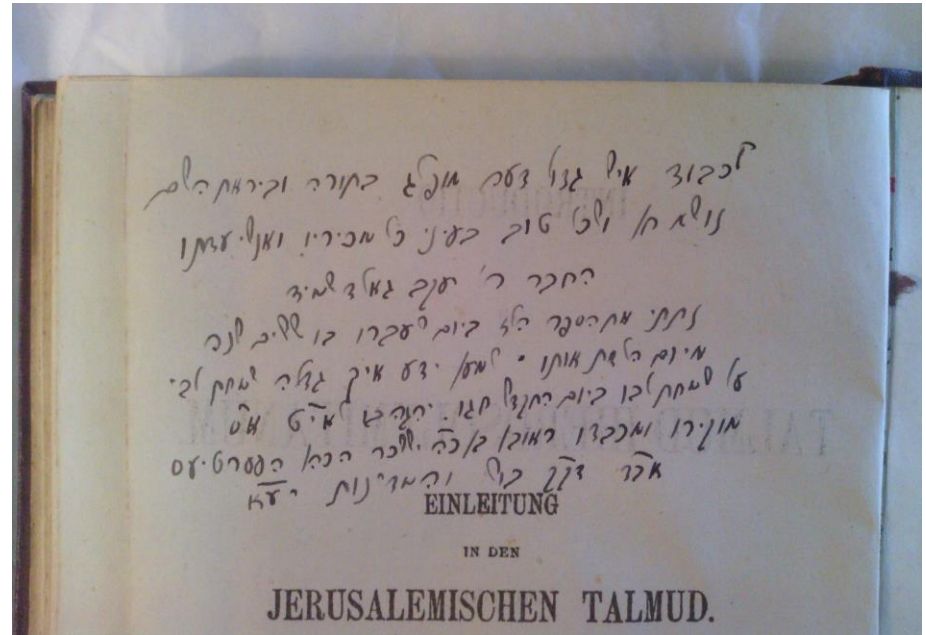 לכבוד איש גדול דעה מופלג בתורה וביראת השם
נושא חן ושכל טוב בעיני כל מכיריו ואנשי עדתו
החבר ר' יעקב גאלדשמיד
נתתי את הספר הלז ביום שעברו בו ששים שנה
מיום הלדת אותו - למען ידע איך גדלה שמחת לבי
על שמחת לבו ביום התקדש חגו. יהנה בו
מוקירו ומכבדו ראובן יששכר הכהן
אב"ד דק"ק והמדינות יע"א
EINLEITUNG
IN DEN
JERUSALEMISCHEN TALMUD.